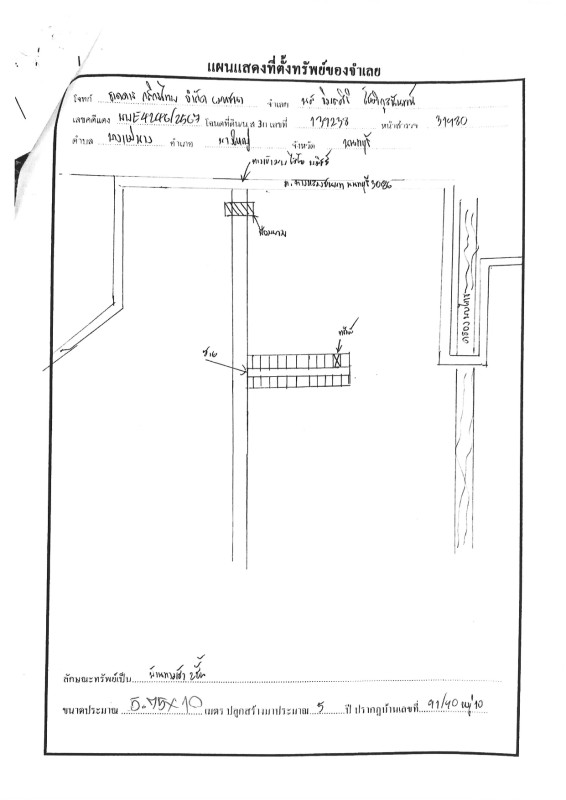 แผนแสดงที่ตั้งทรัพย์ของจำเลย
โจทก์ ธนาคาร กสิกรไทย จำกัด (มหาชน) จำเลย
เลขคดีแดง ผบE4246/2567 โฉนดที่ดิน/น.ส 3ก เลขที่ 137238 หน้าสำรวจ 31980
ตำบล บางแม่นาง อำเภอ บางใหญ่ จังหวัด นนทบุรี
ถ.ทางหลวงชนบท นนทบุรี 3086
ป้อมยาม
ทรัพย์
ซอย
คลอง
ลักษณะทรัพย์เป็น บ้านทาวเฮ้าส์ 2 ชั้น
ขนาดประมาณ 5.75x10 เมตร ปลูกสร้างมาประมาณ 5 ปี ปรากฏบ้านเลขที่ 91/40 หมู่ 10